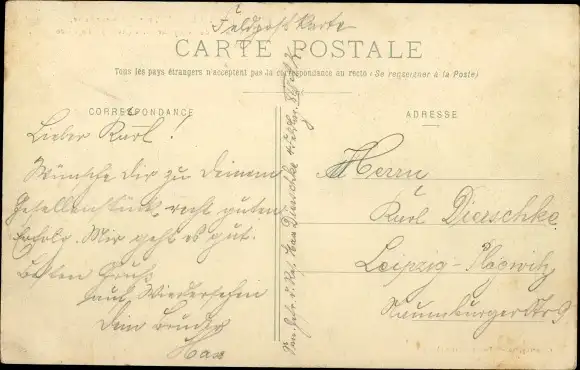 Feldpostkarte
CARTE POSTALE
Tous les pays étrangers n'acceptent pas la correspondance au recto (Se renseigner à la Poste)
CORRESPONDANCE
Lieber Kurl!
Wünsche Dir zu Deinem
Gesellenstück recht guten
Erfolg. Mir geht es gut.
besten Gruß
auf Wiedersehen
Dein Bruder
Max
Max Dierschke
ADRESSE
Herrn
Kurl Dierschke
Leipzig-Plagwitz
Naumburger Str 9